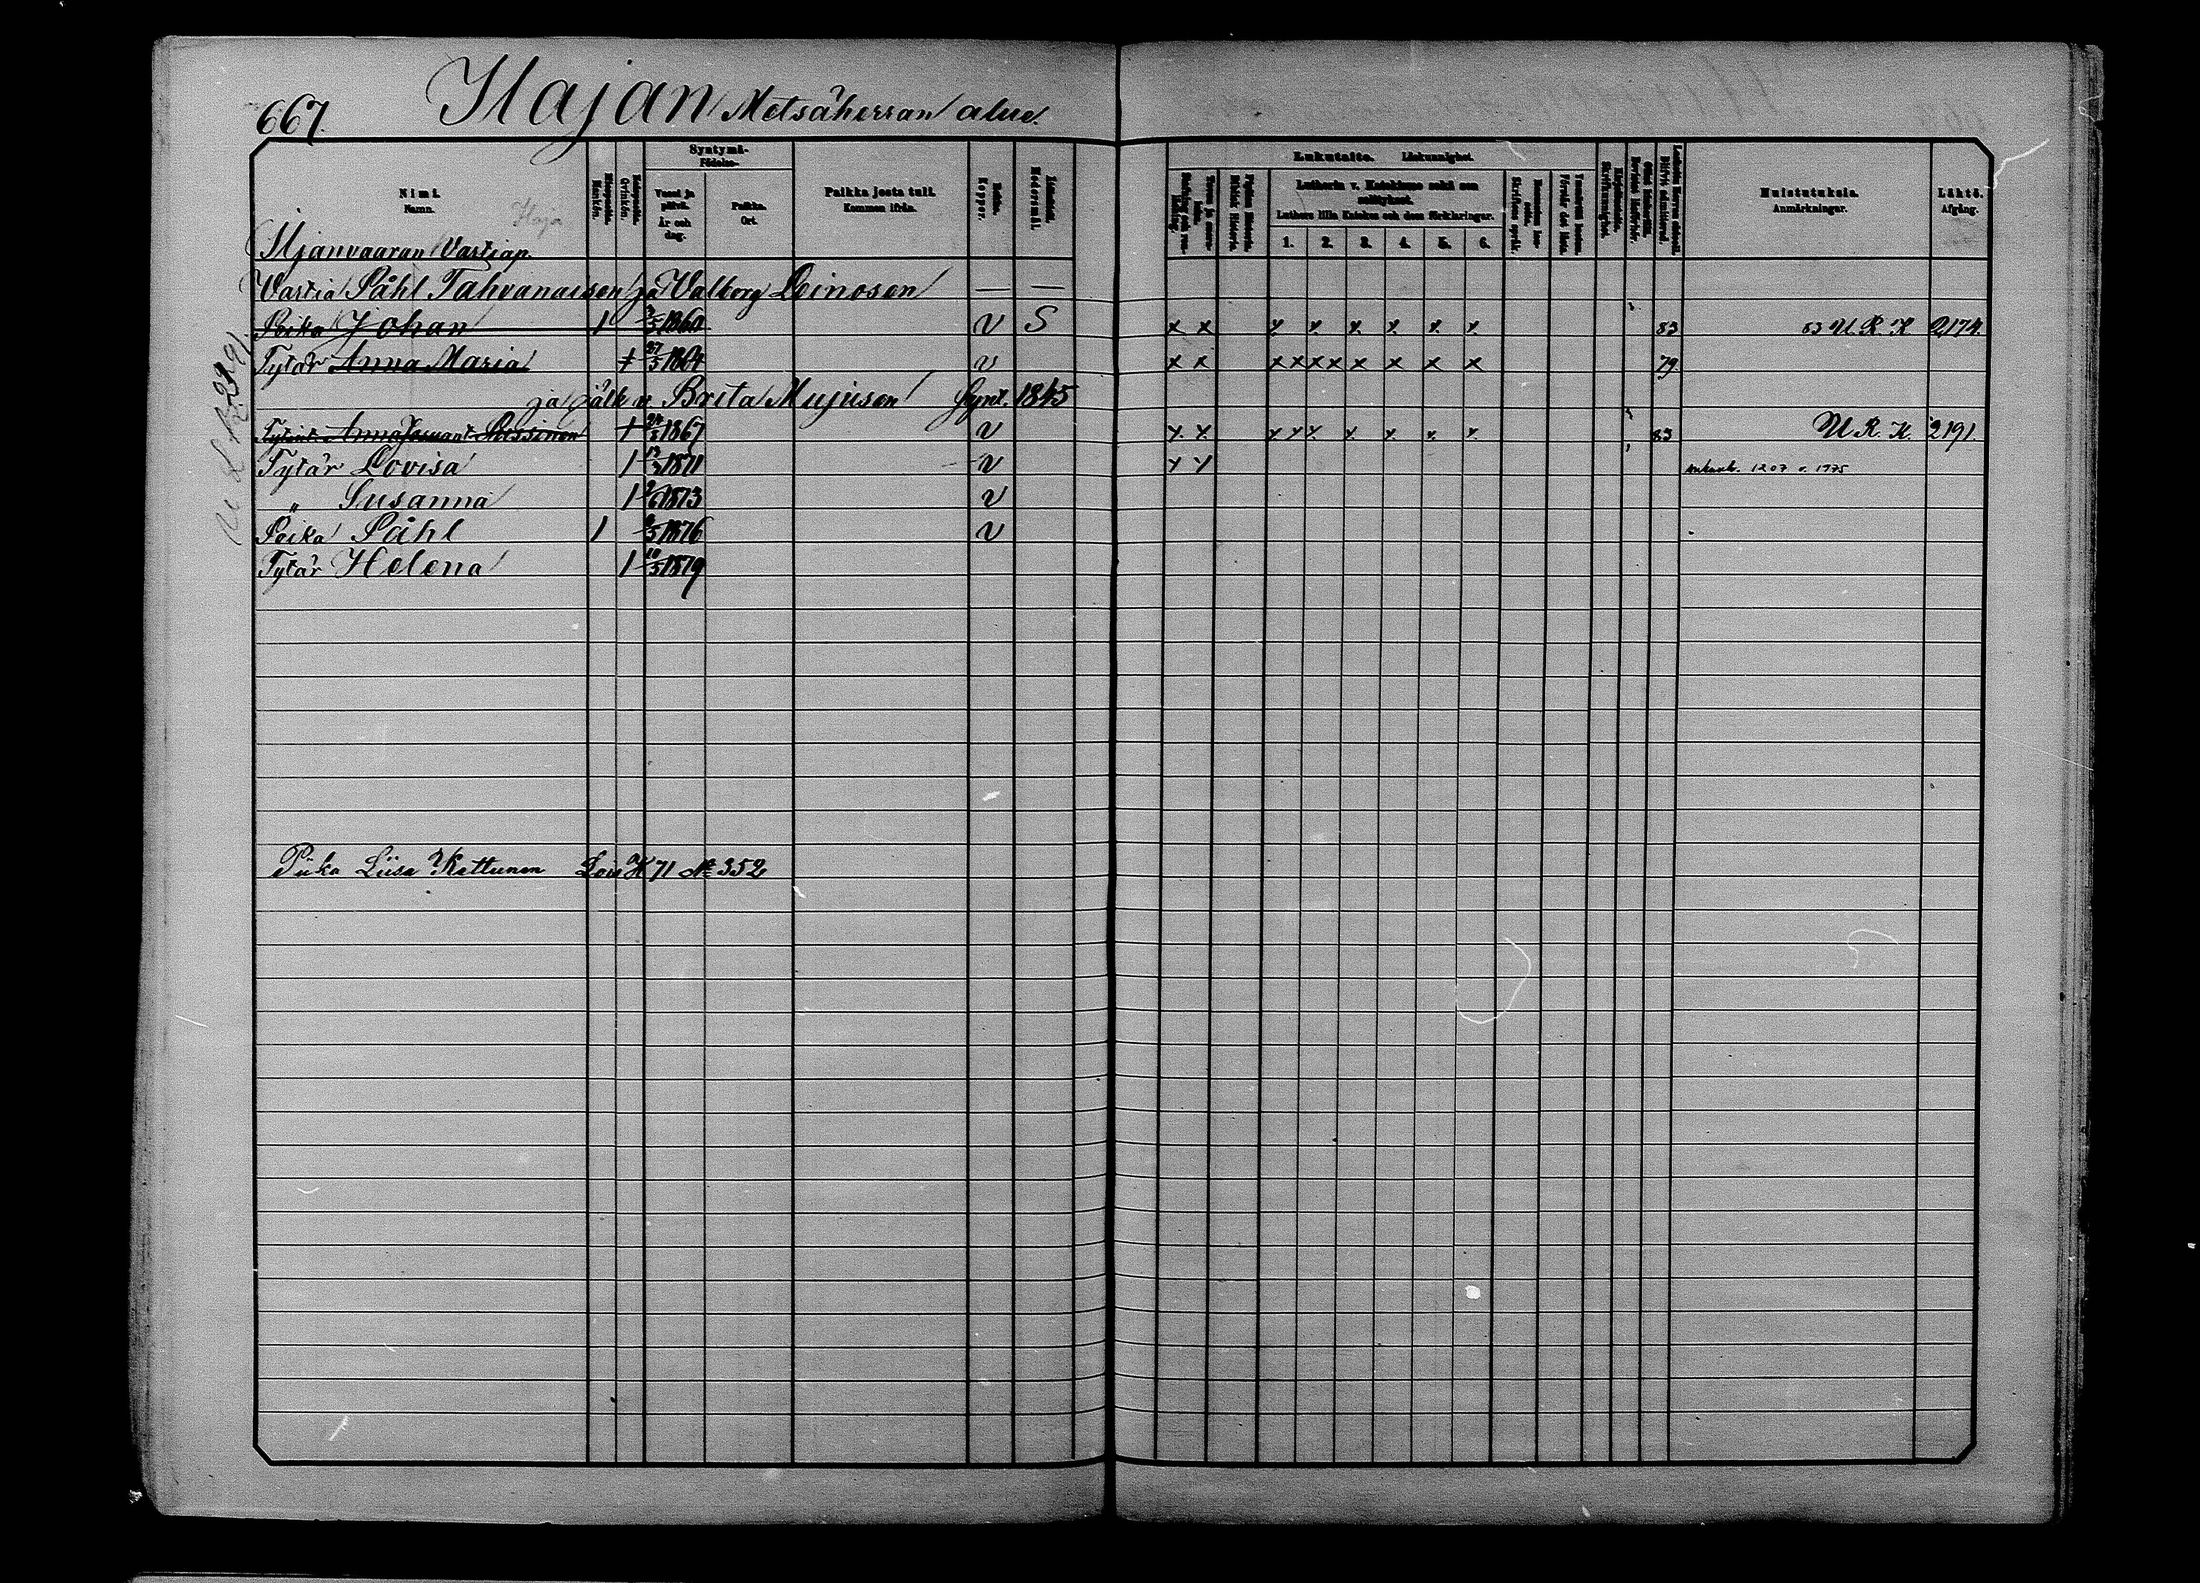 667. Ilajan Metsäherran alue.
Syntymä-
Födelse-
Nimi.
Namn.
Miespuolia.
Mankön.
Naispuolia.
Qvinkön.
Vuosi ja päivä.
År och dag.
Paikka.
Ort.
Paikka josta tuli.
Kommen ifrån.
Rokko.
Koppor.
Modersmål.
Lukutaito. Läskunnighet.
Lutherin v. Katekismo sekä sen selitykset.
Luthers lilla Katekes och dess förklaringar.
1. 2. 3. 4. 5. 6.
Muistutuksia.
Anmärkningar.
Lähtö.
Afgång.
Ilaja
Iljanvaaran Vartiap.
Vartia Påhl Tahvanaisen ja Valborg Leinosen — —
Poika Johan 1 1860 v S x x x x x x x x 83 83 U. R. K 2174.
Tytär Anna Maria + 27/5 1864 v x x x x x x x x x x 79.
ja jälk v. Brita Mujusen Synt. 1845
Anna + 24 1867 v x x x x x x x x x 83 U. R. K. 2191.
Tytär Lovisa 1 13 1871 v x x 1207 v. 1975
" Susanna 1 1873 v
Poika Påhl 1 1876 v
Tytär Helena 1 10/5 1879
Piika Liisa Kettunen 71 № 352